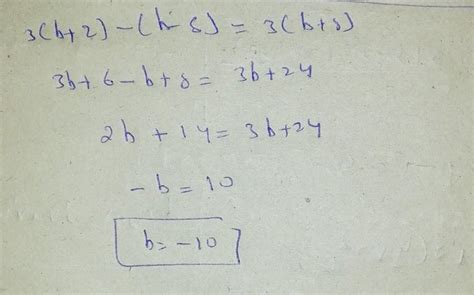 3(b+2)-(b-8)=3(b+8)
3b+6-b+8=3b+24
2b+14=3b+24
-b=10
b=-10